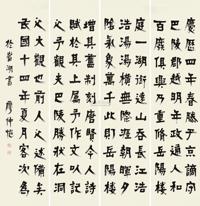 慶曆四年春滕子京謫守
巴陵郡越明年政通人和
百廢具興乃重修岳陽樓
庭一湖銜遠山吞長江浩
浩湯湯橫無際涯朝暉夕
陰氣象萬千此則岳陽樓
增其舊制刻唐賢今人詩
賦於其上屬予作文以記
之予觀夫巴陵勝狀在洞
之大觀也前人之述備矣
民國十四年夏月客次為
湖書 廖仲愷